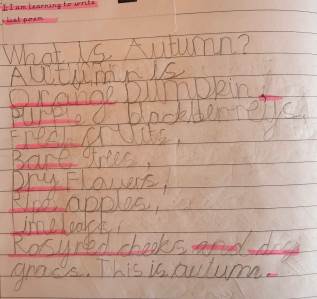 I am learning to write
a list poem
What is Autumn?
Autumn is
Orange pumpkin,
Purple blackberreys,
Fresh fruits,
Bare trees,
Dry Flowers,
Ripe apples,
leaves,
Rosy red cheeks and dry
grass. This is autumn.